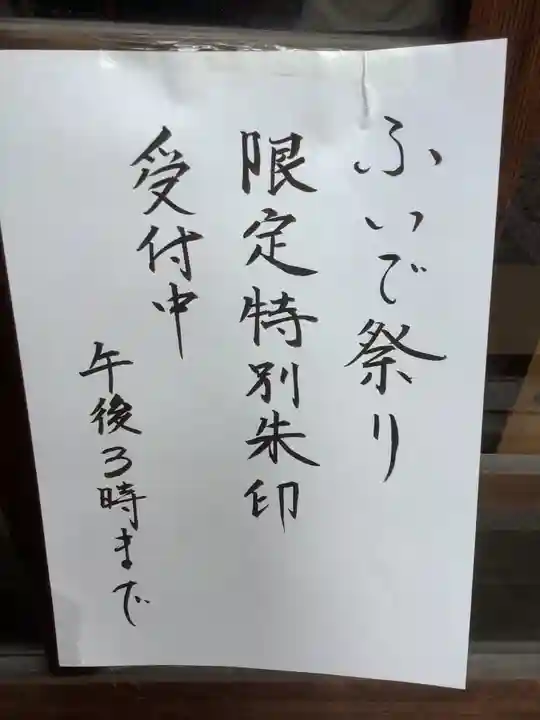 ふいで祭り
限定特別朱印
受付中
午後3時まで